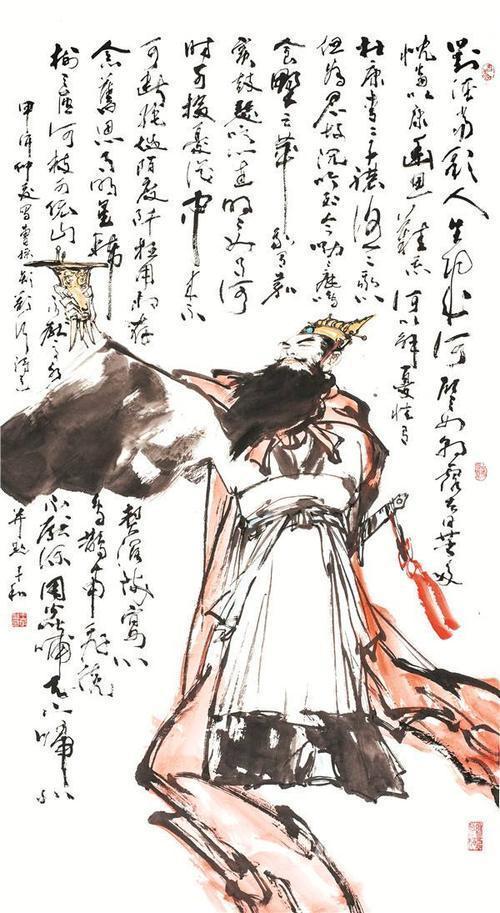 對酒當歌人生幾何譬如朝露去日苦多
慨當以慷幽思難忘何以解憂惟有
杜康青青子衿悠悠我心
但為君故沉吟至今呦呦鹿鳴
食野之苹我有嘉
賓鼓瑟吹笙明明如月何
時可掇憂從中來不
可斷絕越陌度阡枉用相存
契闊談讌心
念舊恩月明星稀
烏鵲南飛繞
樹三匝何枝可依山
不厭高海
不厭深周公吐哺天下歸心
甲午仲夏寫曹操短歌行詩意
并題